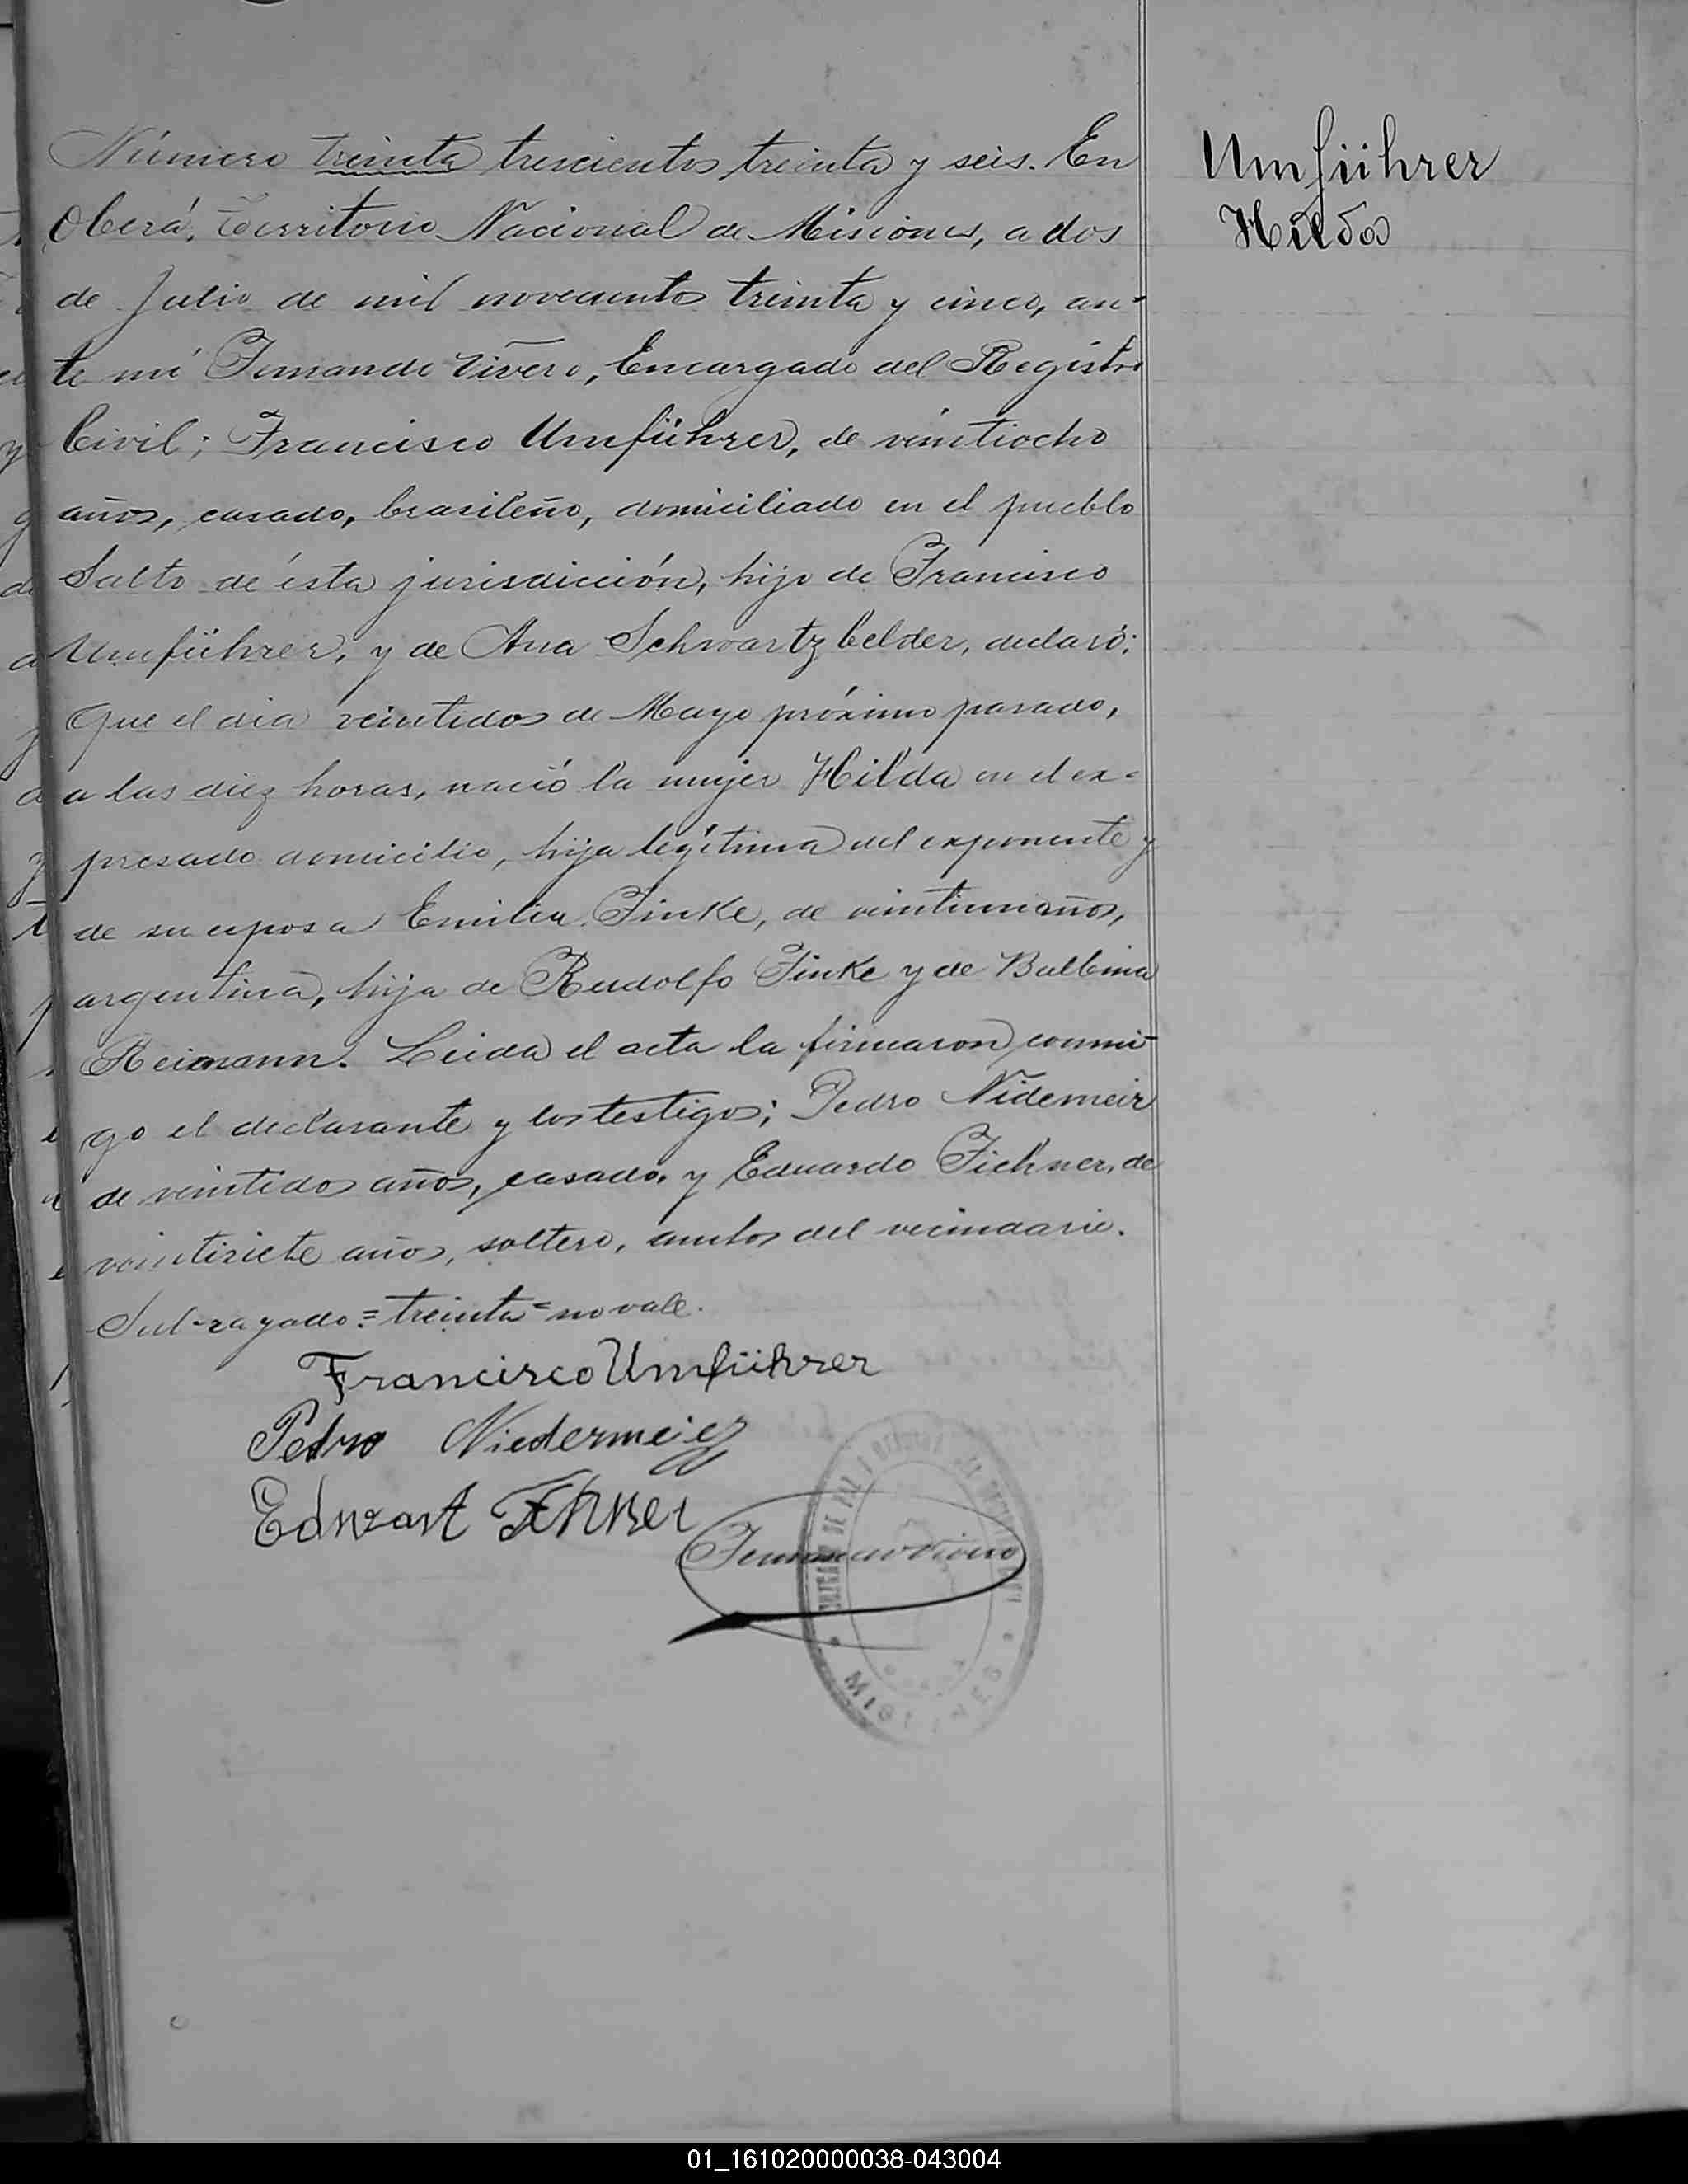 Número treinta trescientos treinta y seis. En
Oberá, Territorio Nacional de Misiones, a dos
de Julio de mil novecientos treinta y cinco, an-
te mí Fernando Vivero, Encargado del Registro
Civil; Francisco Umführer, de veintiocho
años, casado, brasileño, domiciliado en el pueblo
Salto de ésta jurisdicción, hijo de Francisco
Umführer, y de Ana Schwartz belder, declaró:
Que el dia veintidos de Mayo próximo pasado,
a las diez horas, nació la mujer Hilda en el ex-
presado domicilio, hija legítima del exponente y
de su esposa Emilia Finke, de veintiun años,
argentina, hija de Rudolfo Finke y de Balbina
Reimann. Leida el acta la firmaron conmi-
go el declarante y los testigos; Pedro Nidemeir
de veintidos años, casado, y Eduardo Fichner, de
veintisiete años, soltero, ambos del vecindario.
Sub-rayado = treinta = no vale.
Francisco Umführer
Pedro Niedermeier
Eduart
Fernando Vivero
MISIONES
Umführer
Hilda
01_161020000038-043004